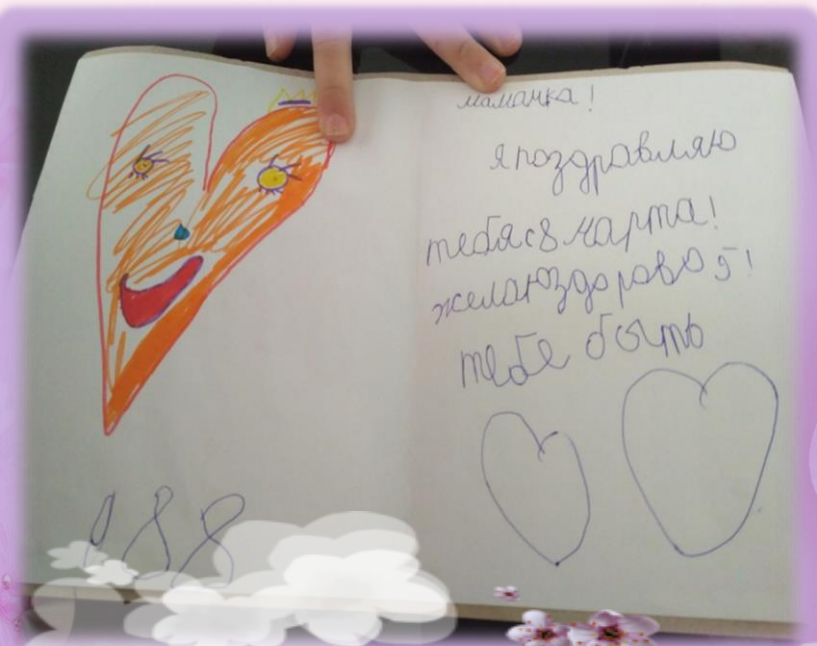 мамачка!
я поздравляю
тебя с 8 марта!
желаю здоровой!
тебе быть
888